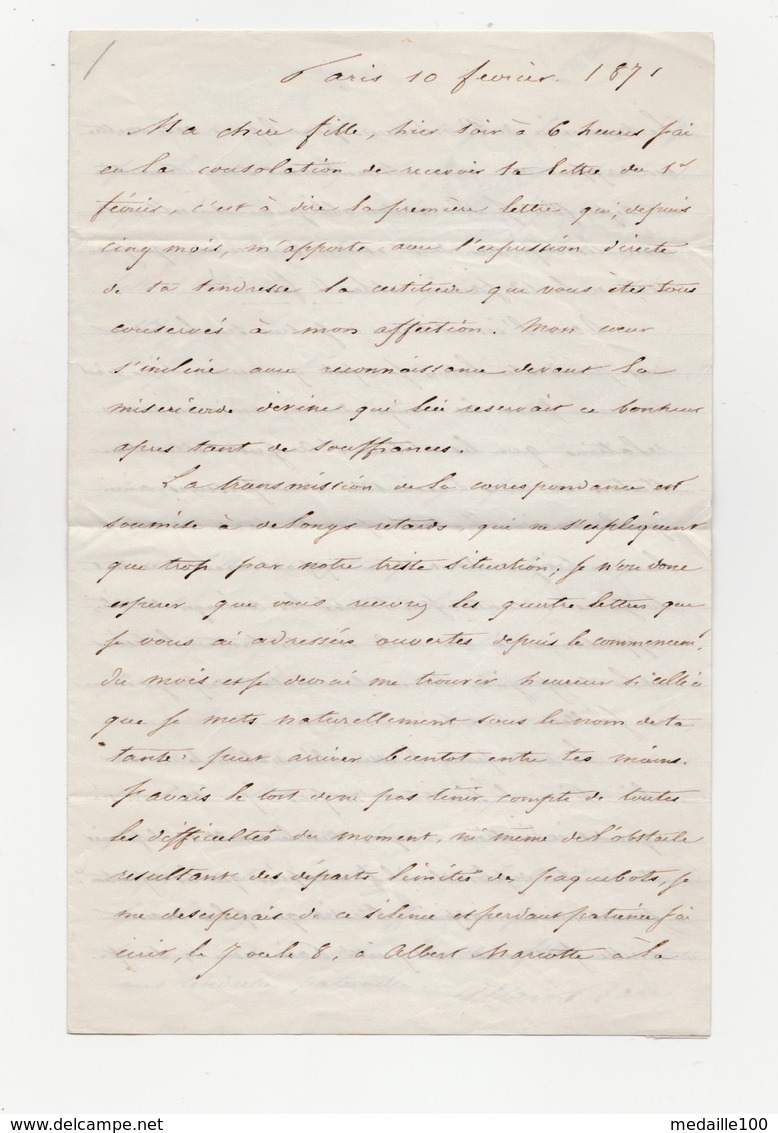 1
Paris 10 fevrier. 1871
Ma chère fille, hier soir à 6 heures j'ai
eu la consolation de recevoir ta lettre du 1er
février, c'est à dire la première lettre qui, depuis
cinq mois, m'apporte avec l'expression directe
de ta tendresse la certitude que vous êtes tous
conservés à mon affection. Mon cœur
s'incline avec reconnaissance devant la
misericorde divine qui lui reservait ce bonheur
apres tant de souffrances.
La transmission de la correspondance est
soumise à de longs retards, qui ne s'expliquent
que trop par notre triste situation; je n'ose donc
esperer que vous recevrez les quatre lettres que
je vous ai adressées ouvertes depuis le commencemt
du mois et je devrai me trouver heureux si celle ci
que je mets naturellement sous le nom de ta
tante peut arriver bientot entre tes mains.
J'avais le tort de ne pas tenir compte de toutes
les difficultés du moment, ni meme de l'obstacle
resultant des départs limités des paquebots, je
me desesperais de ce silence et perdant patience j'ai
ecrit, le 7 ou le 8, à Albert Marcotte à la
delcampe.net
medaille100